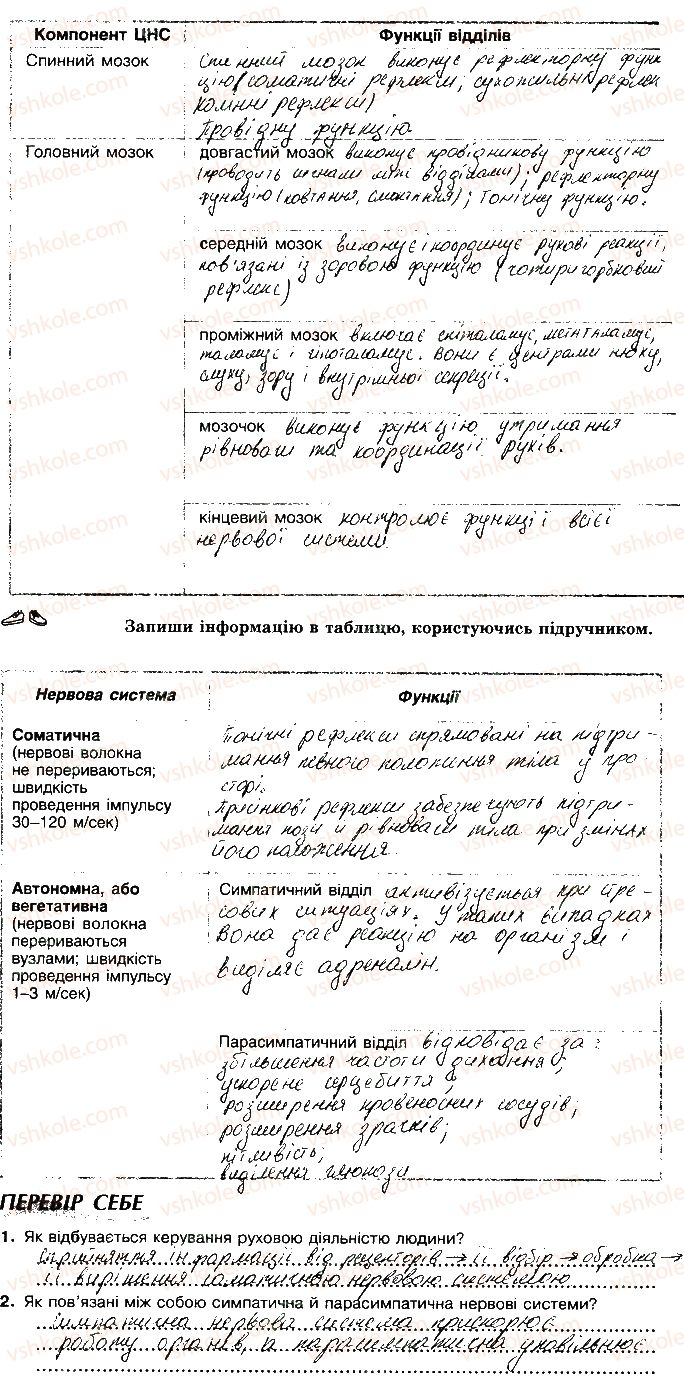 Компонент ЦНС Функції відділів
Спинний мозок Спинний мозок виконує рефлекторну функ
цію (соматичні рефлекси, сухожильні рефлек
колінні рефлекси)
Провідну функцію.
Головний мозок довгастий мозок виконує провідникову функцію
(проводить шляхами між відділами); рефлекторну
функцію (ковтання, смоктання); тонічну функцію.
середній мозок виконує і координує рухові реакції,
пов'язані із зоровою функцію (чотиригорбковий
рефлекс)
проміжний мозок включає епіталамус, метаталамус,
таламус і гіпоталамус. Вони є центрами нюху,
слуху, зору і внутрішньої секреції.
мозочок виконує функцію утримання
рівноваги та координації рухів.
кінцевий мозок контролює функції всієї
нервової системи.
Запиши інформацію в таблицю, користуючись підручником.
Нервова система Функції
Соматична
(нервові волокна
не перериваються;
швидкість
проведення імпульсу
30–120 м/сек)
Тонічні рефлекси спрямовані на підтри-
мання певного положення тіла у про-
сторі.
Присінкові рефлекси забезпечують підтри-
мання пози й рівноваги тіла при змінах
його положення.
Автономна, або
вегетативна
(нервові волокна
перериваються
вузлами; швидкість
проведення імпульсу
1–3 м/сек)
Симпатичний відділ активізується при стре-
сових ситуаціях. У таких випадках
вона дає реакцію на організм і
виділяє адреналін.
Парасимпатичний відділ відповідає за:
збільшення частоти дихання;
ускорене серцебиття;
розширення кровеносних сосудів;
розширення зрачків;
пітливість;
виділення глюкози
ПЕРЕВІР СЕБЕ
1. Як відбувається керування руховою діяльністю людини?
Сприйняття інформації від рецепторів → її відбір → обробка →
її вирішення соматичною нервовою системою
2. Як пов'язані між собою симпатична й парасимпатична нервові системи?
Симпатична нервова система прискорює
роботу органів, а парасимпатична уповільнює